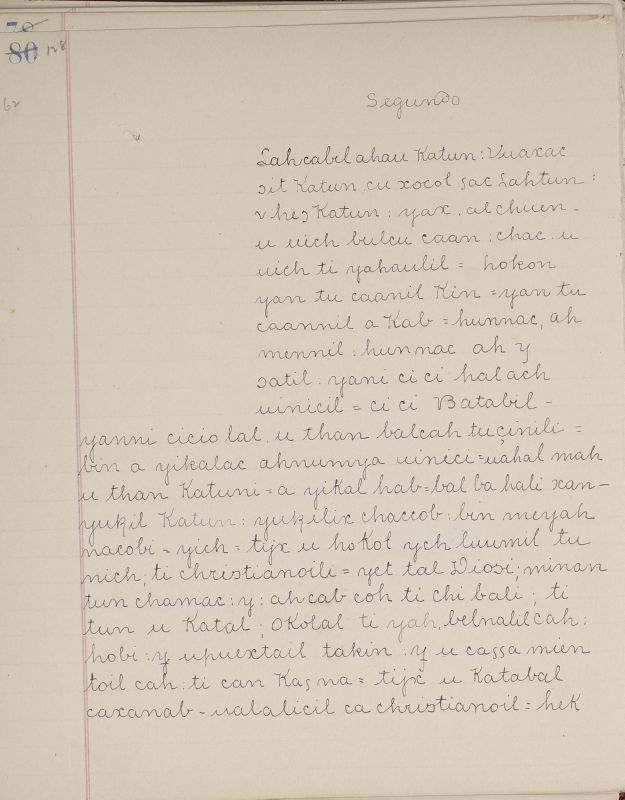 70
80 128
62
Segundo
Lahcabil ahau Katun : Vuaxac
sit Katun cu xocol sac Lahtun :
v heɔ Katun : yax . al chuen .
u uich bulcu caan : chac . u
uich ti yahaulil = hokon
yan tu caanil Kin = yan tu
caannil a Kab = hunnac, ah
mennil : hunnac ah y
satil : yani ci ci halach
uinicil = ci ci Batabil -
yanni cicio lal u than balcah tuçinili =
bin a yikalac ahnumya uinici = uahal mah
u than Katuni = a yikal hab = bal ba hali xan -
yukil Katun : yukilix chaccob : bin meyah
nacobi - yich = tijx u hoKol ych luumil tu
nich, ti christianoili = yet tal Diosi ; minan
tun chamac : y : ah cab coh ti chi bali ; ti
tun u Katal ; OKolal ti yah, belnalil cah :
hobi : y upuextail takin : y u cassa mien
toil cah : ti can Kas na = tijx u Katabal
caxanab - ualalicil ca christianoil = hek